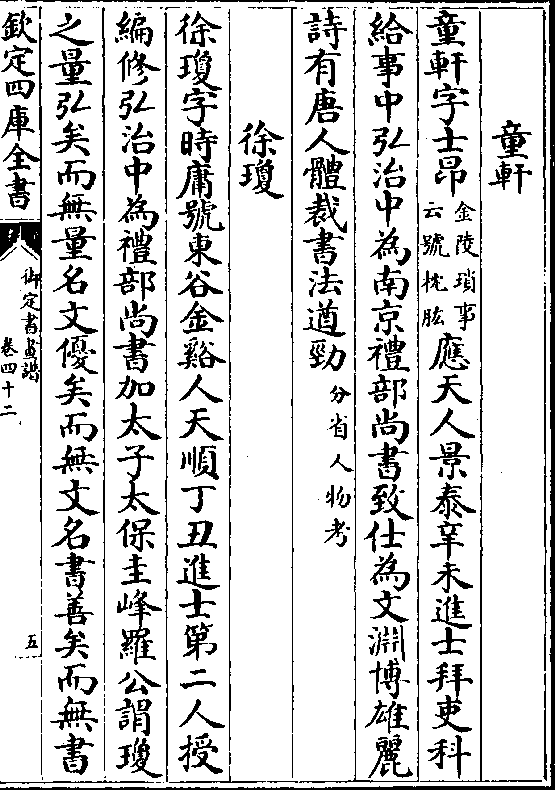 童軒
童軒字士昂金陵瑣事云號枕肱應天人景泰辛未進士拜吏科
給事中弘治中為南京禮部尚書致仕為文淵博雄麗
詩有唐人體裁書法遒勁分省人物考
徐瓊
徐瓊字時庸號東谷金谿人天順丁丑進士第二人授
編修弘治中為禮部尚書加太子太保圭峰羅公謂瓊
之量弘矣而無量名文優矣而無文名書善矣而無書
欽定四庫全書
御定書畫譜
卷四十二
五